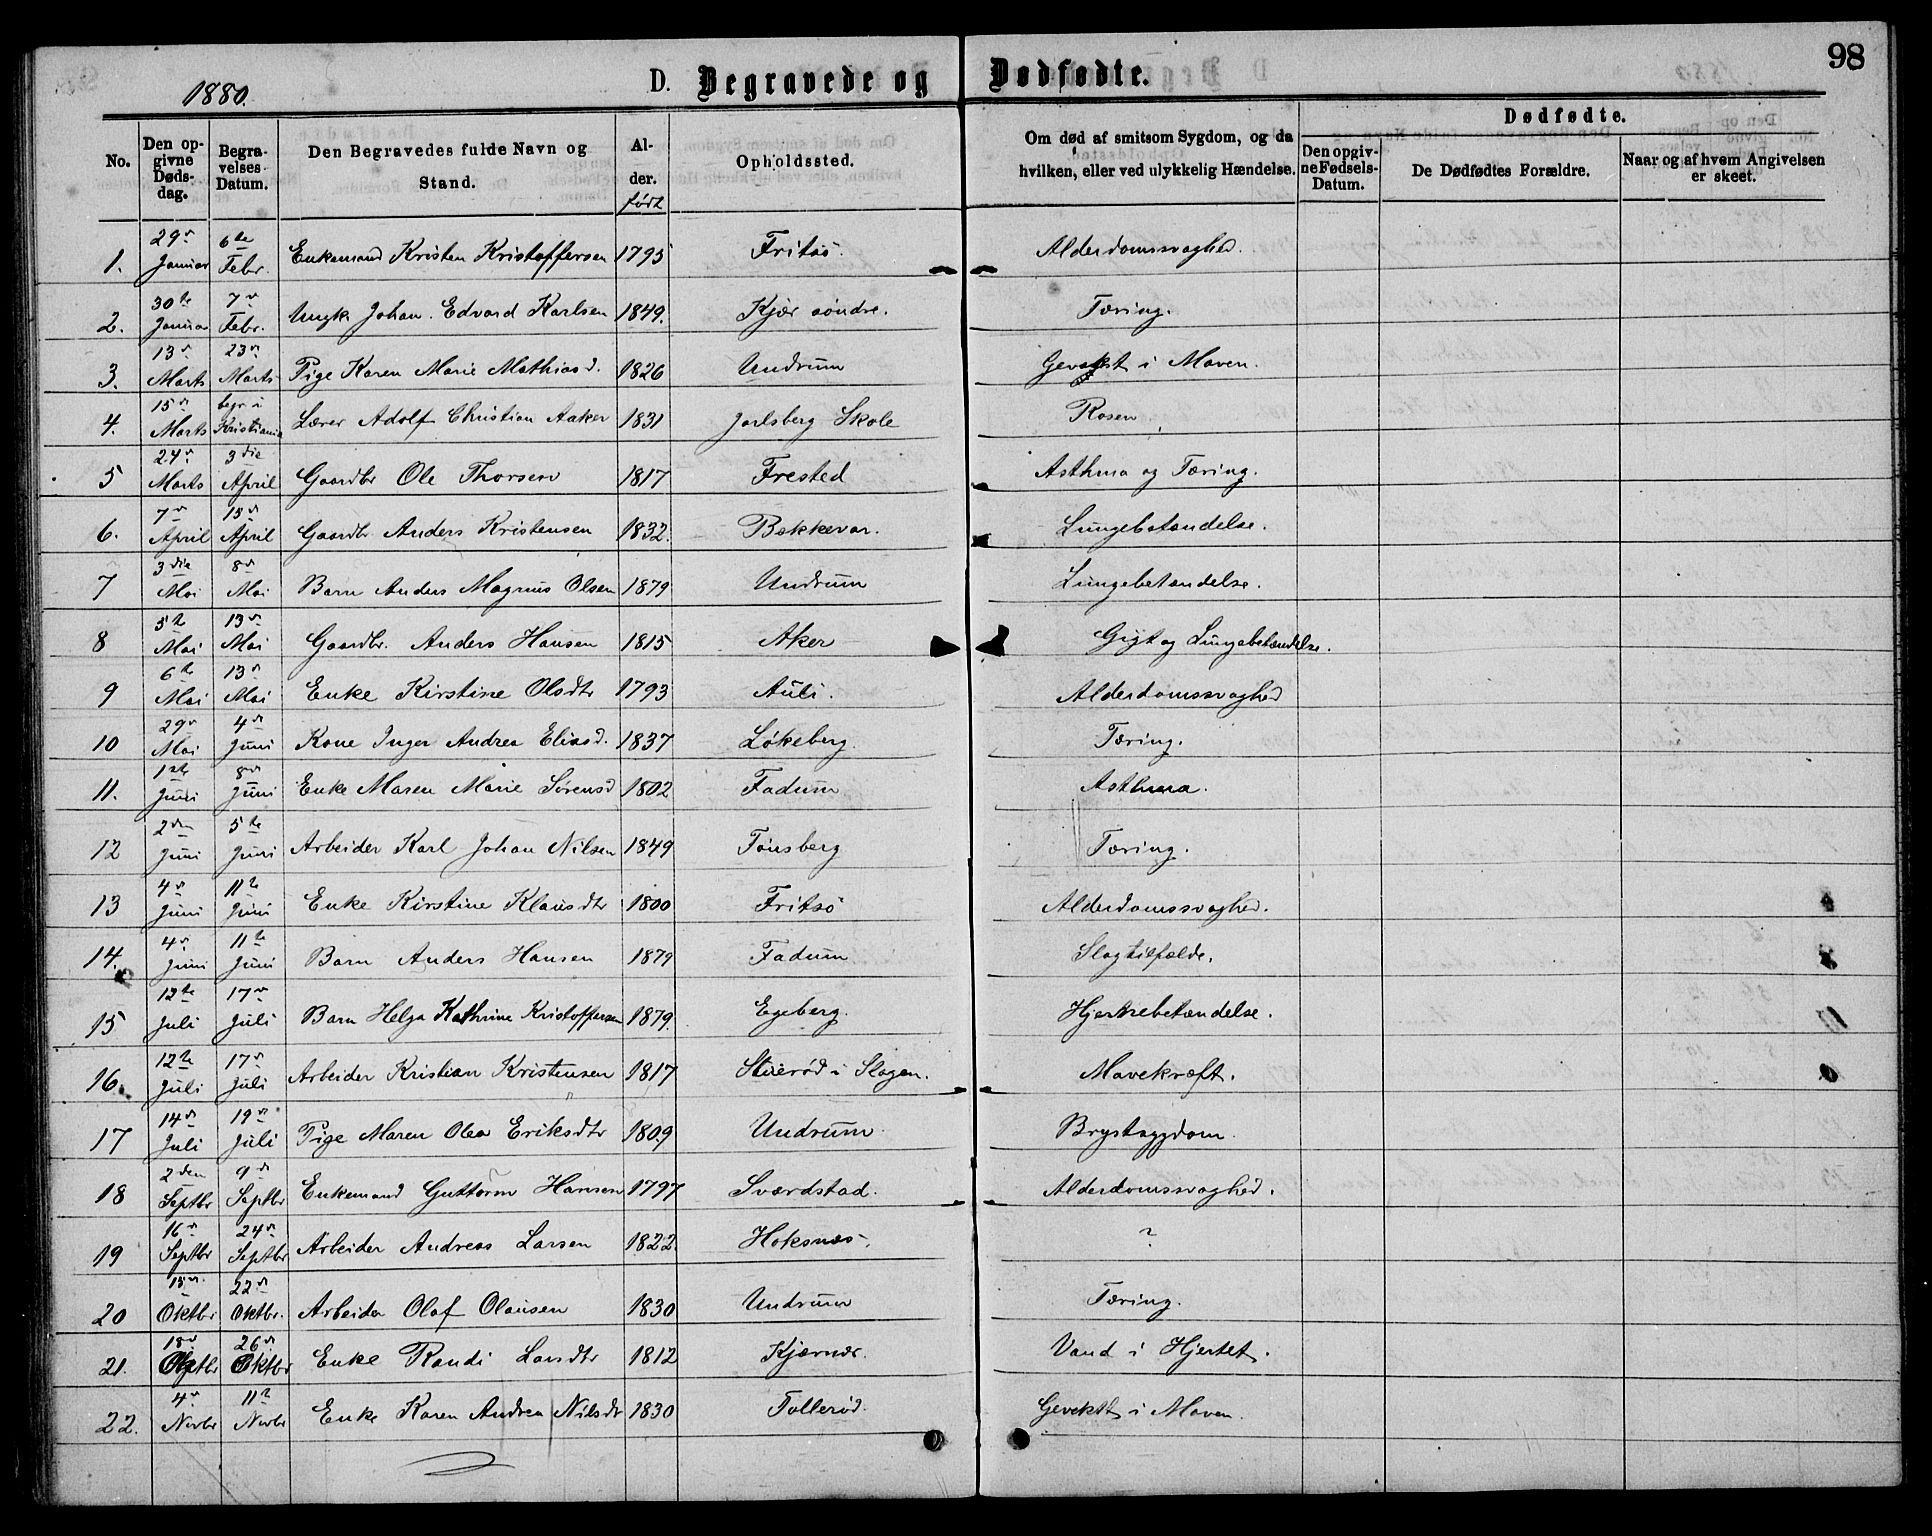 98
1880.
D. Begravede og Dødfødte.
No. | Den opgivne Dødsdag. | Begravelses-Datum. | Den Begravedes fulde Navn og Stand. | Alder. født | Opholdssted. | Om død af smitsom Sygdom, og da hvilken, eller ved ulykkelig Hændelse. | Dødfødte. Den opgivne Fødsels-Datum. | De Dødfødtes Forældre. | Naar og af hvem Angivelsen er skeet.
1. | 29de Januar | 6te Febr. | Enkemand Kristen Kristoffersen | 1795 | Fritsö. | Alderdomssvaghed.
2. | 30te Januar | 7de Febr. | Ungk. Johan Edvard Karlsen | 1849. | Kjær söndre. | Tæring.
3. | 13de Marts | 23de Marts | Pige Karen Marie Mathiasd. | 1826 | Undrum | Gevækst i Maven.
4. | 15de Marts | begr. i Kristiania | Lærer Adolf Christian Aaker | 1831 | Jarlsberg Skole | Rosen
5 | 24de Marts | 3die April | Gaardbr Ole Thorsen | 1817 | Frested | Asthma og Tæring.
6. | 7de April | 15de April | Gaardbr Anders Kristensen | 1832. | Bekkevar. | Lungebetændelse.
7 | 3die Mai | 8de Mai | Barn Anders Magnus Olsen | 1879 | Undrum | Lungebetændelse.
8 | 5te Mai | 13de Mai | Gaardbr. Anders Hansen | 1815 | Aker | Gigt og Lungebetændelse.
9 | 6te Mai | 13de Mai | Enke Kirstine Olsdtr | 1793 | Auli. | Alderdomssvaghed
10 | 29de Mai | 4de Juni | Kone Inger Andrea Eliasd. | 1837 | Løkeberg. | Tæring.
11. | 1ste Juni | 8de Juni | Enke Maren Marie Sørensd | 1802 | Fadum | Asthma.
12 | 2den Juni | 5te Juni | Arbeider Karl Johan Nilsen | 1849 | Tønsberg | Tæring.
13 | 4de Juni | 11te Juni | Enke Kirstine Klausdtr | 1800 | Fritsö | Alderdomssvaghed.
14. | 4de Juni | 11te Juni | Barn Anders Hansen | 1879 | Fadum | Slagtilfælde.
15 | 12te Juli | 17de Juli | Barn Helga Kathrine Kristoffersen | 1879. | Egeberg. | Hjertebetændelse.
16. | 12te Juli | 17de Juli | Arbeider Kristian Kristensen | 1817 | i Slagen. | Mavekræft.
17 | 14de Juli | 19de Juli | Pige Maren Olea Eriksdtr | 1809 | Undrum | Brystsygdom.
18 | 2den Septbr | 9de Septbr | Enkemand Guttorm Hansen | 1797 | Sværdstad. | Alderdomssvaghed.
19 | 16de Septbr | 24de Septbr | Arbeider Andreas Larsen | 1822. | Hoksnæs. | ?
20 | 15de Oktbr | 22de Oktbr. | Arbeider Olaf Olausen | 1830 | Undrum | Tæring.
21. | 18de Oktbr | 26de Oktbr | Enke Randi Larsdtr | 1812 | Kjærnær. | Vand i Hjertet.
22. | 4de Novbr | 11te Novbr | Enke Karen Andrea Nilsdtr | 1830 | Tollerød. | Gevekst i Maven.